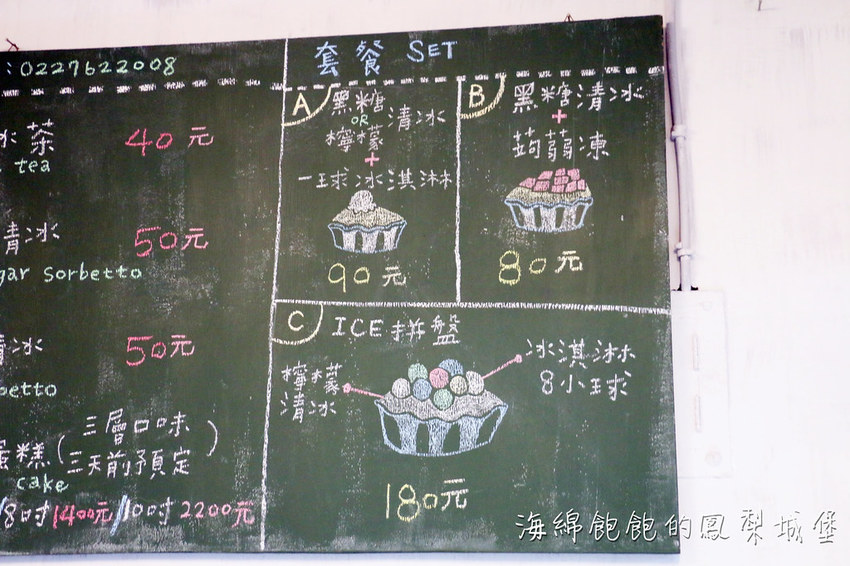 ：0227622008
冰茶 40元
tea
清冰 50元
gar Sorbetto
清冰 50元
betto
三層口味
蛋糕( )
三天前預定
cake
/8吋1400元/10吋2200元
套餐 SET
A
黑糖
OR
檸檬
清冰
+
一球冰淇淋
90元
B
黑糖清冰
+
蒟蒻凍
80元
C ICE拼盤
檸檬
清冰
冰淇淋
8小球
180元
海綿飽飽的鳳梨城堡